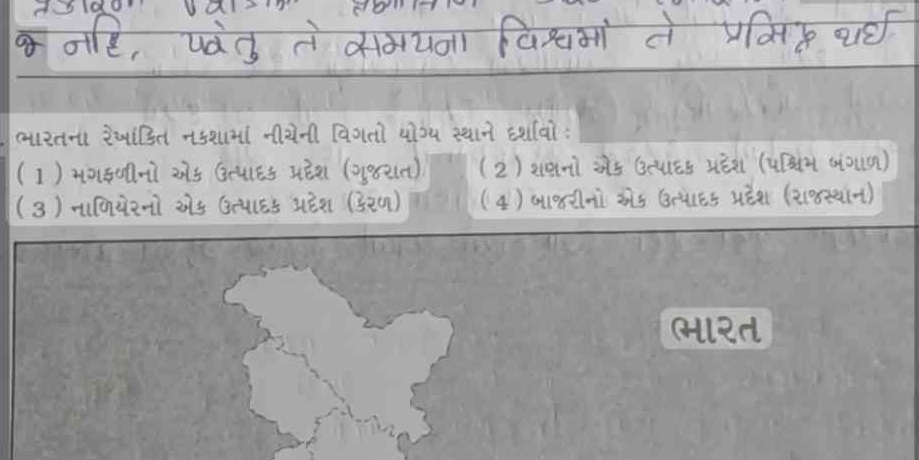 જ નહિ, પરંતુ તે સમયના વિશ્વમાં તે પ્રસિદ્ધ થઈ
ભારતના રેખાંકિત નકશામાં નીચેની વિગતો યોગ્ય સ્થાને દર્શાવો :
(1) મગફળીનો એક ઉત્પાદક પ્રદેશ (ગુજરાત) (2) શણનો એક ઉત્પાદક પ્રદેશ (પશ્ચિમ બંગાળ)
(3) નાળિયેરનો એક ઉત્પાદક પ્રદેશ (કેરળ) (4) બાજરીનો એક ઉત્પાદક પ્રદેશ (રાજસ્થાન)
ભારત